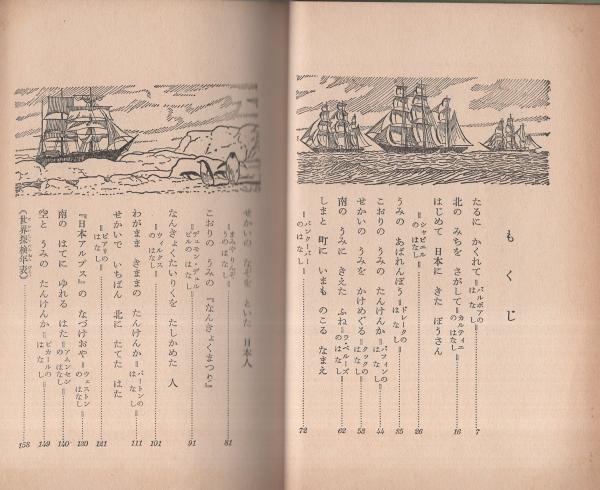 もくじ
たるに かくれて＝バルボアの はなし＝ 7
北の みちを さがして＝カルティエ のはなし＝ 16
はじめて 日本に きた ぼうさん
＝シャビエル のはなし＝ 26
うみの あばれんぼう＝ドレークの はなし＝ 35
こおりの うみの たんけんか＝バフィンの はなし＝ 44
せかいの うみを かけめぐる＝クックの はなし＝ 53
南の うみに きえた ふね＝ラ・ペルーズ のはなし＝ 62
しまと 町に いまも のこる なまえ
＝バンクーバー のはなし＝ 72
せかいの なぞを といた 日本人
＝まみやりんぞ うのはなし＝ 81
こおりの うみの 『なんきょくまつり』
＝デュモン・デュル ビルのはなし＝ 91
なんきょくたいりくを たしかめた 人
＝ウィルクス のはなし＝ 101
わがまま きままの たんけんか＝バートンの はなし＝ 111
せかいで いちばん 北に たてた はた
＝ピアリの はなし＝ 121
『日本アルプス』の なづけおや＝ウェストン のはなし＝ 130
南の はてに ゆれる はた＝アムンセン のはなし＝ 140
空と うみの たんけんか＝ピカールの はなし＝ 149
《世界探検年表》 158